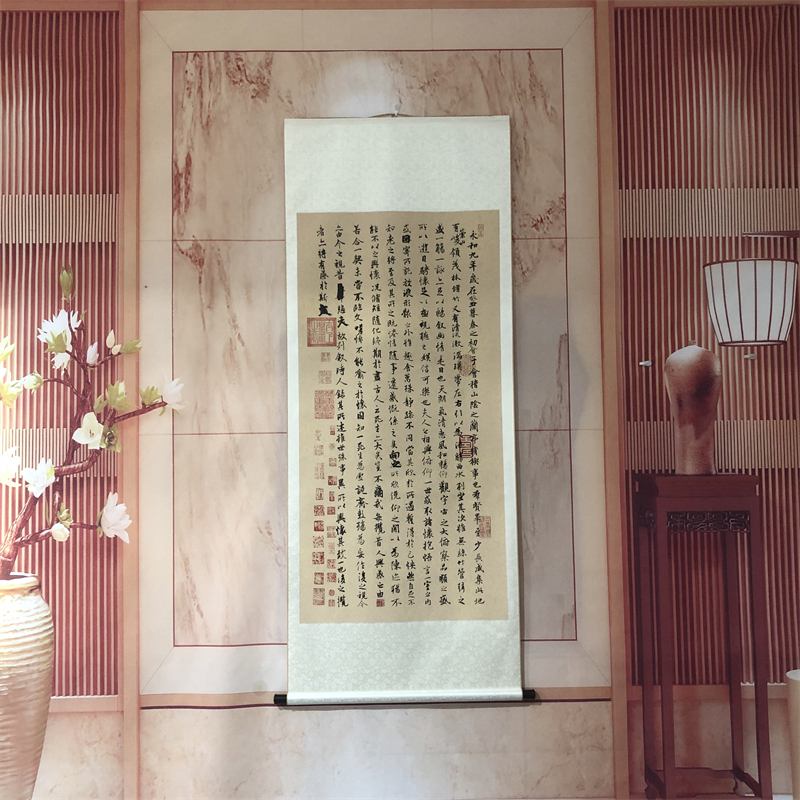 永和九年歲在癸丑暮春之初會于會稽山陰之蘭亭脩稧事也羣賢畢至少長咸集此地
有崇山峻領茂林脩竹又有清流激湍暎帶左右引以為流觴曲水列坐其次雖無絲竹管弦之
盛一觴一詠亦足以暢敘幽情是日也天朗氣清惠風和暢仰觀宇宙之大俯察品類之盛
所以遊目騁懷足以極視聽之娛信可樂也夫人之相與俯仰一世或取諸懷抱悟言一室之內
或因寄所託放浪形骸之外雖趣舍萬殊靜躁不同當其欣於所遇暫得於己怏然自足不
知老之將至及其所之既惓情隨事遷感慨係之矣向之所欣俛仰之閒以為陳迹猶不
能不以之興懷況脩短隨化終期於盡古人云死生亦大矣豈不痛哉每攬昔人興感之由
若合一契未嘗不臨文嗟悼不能喻之於懷固知一死生為虛誕齊彭殤為妄作後之視今
亦由今之視昔悲夫故列敘時人錄其所述雖世殊事異所以興懷其致一也後之攬
者亦將有感於斯文